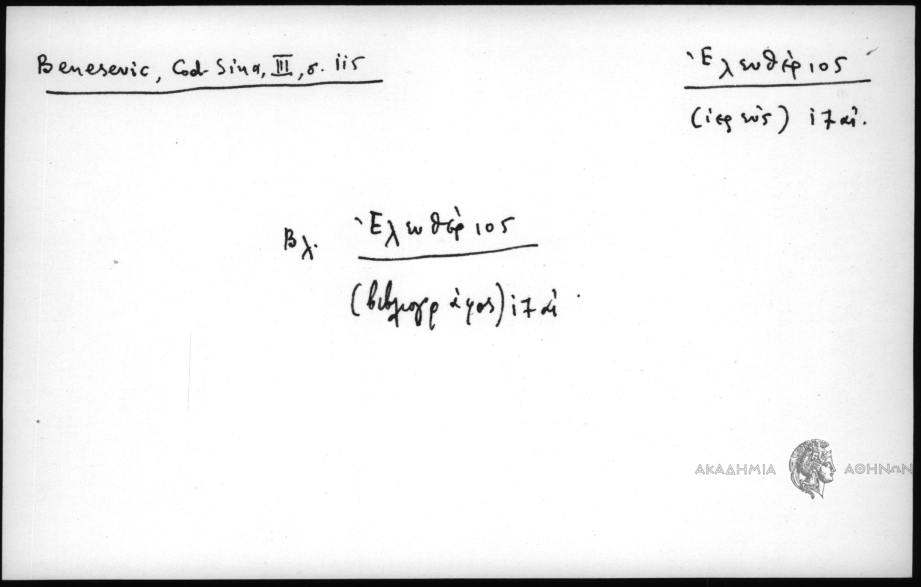 Benesevic, Cod. Sina, III, σ. 115
Ἐλευθέριος
(ἱερεύς) 17 αἰ.
Βλ. Ἐλευθέριος
(βιβλιογράφος) 17 αἰ.
ΑΚΑΔΗΜΙΑ ΑΘΗΝΩΝ